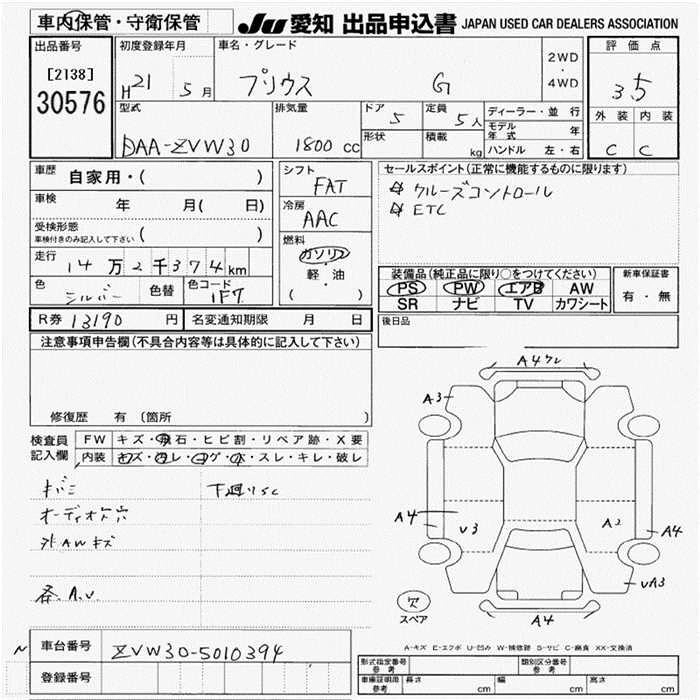 車内保管・守衛保管 JU 愛知 出品申込書 JAPAN USED CAR DEALERS ASSOCIATION
出品番号 初度登録年月 車名・グレード 2WD・4WD 評価点
[2138] 30576 H21 5月 プリウス G 3.5
型式 排気量 ドア 5 定員 5人 ディーラー・並行 外装 内装
DAA-ZVW30 1800cc 形状 積載 kg モデル年式 年 ハンドル 左・右 C C
車歴 自家用・( ) シフト FAT セールスポイント(正常に機能するものに限ります)
車検 年 月( 日) 冷房 AAC ☆ クルーズコントロール
受検形態 ( ) ☆ ETC
車検付きのみ記入して下さい
走行 14万2千374km 燃料 ガソリン・軽・油 ( )
装備品(純正品に限り○をつけてください) 新車保証書
色 シルバー 色替 色コード 1F7 PS PW エアB AW 有・無
SR ナビ TV カワシート
R券 13190 円 名変通知期限 月 日 後日品
注意事項申告欄(不具合内容等は具体的に記入して下さい)
修復歴 有 〔箇所 〕
検査員記入欄 FW キズ・飛石・ヒビ割・リペア跡・X要
内装 キズ・ヨレ・コゲ・穴・スレ・キレ・破レ
キバミ 下廻りSC
オーディオ下穴
外AWキズ
各.A.U.
A4ワレ
A3
A4 U3 A2 A4
UA3
A4
欠
スペア
A-キズ E-エクボ U-凹み W-補修跡 S-サビ C-腐食 XX-交換済
N 車台番号 ZVW30-5010394
登録番号
型式指定番号 参考 類別区分番号 参考
車庫証明用 参考 長さ cm 幅 cm 高さ cm